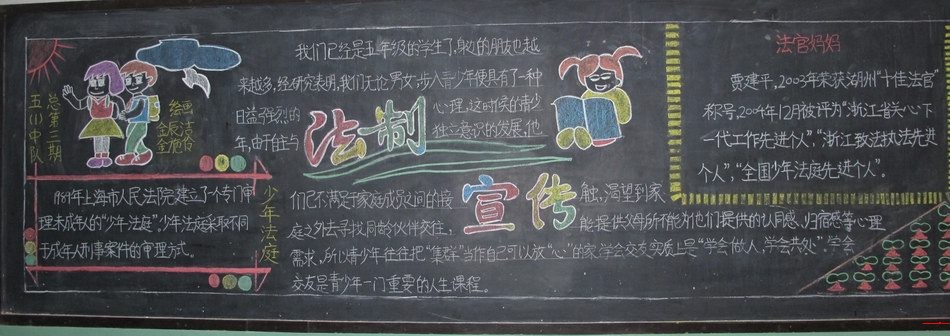 五(1)中队
总第三期
绘画
1984年上海市人民法院建立了个专门审
理未成年人的“少年法庭”,少年法庭采取不同
于成年人刑事案件的审理方式。
少年法庭
我们已经是五年级的学生了,身边的朋友也越
来越多,经研究表明,我们无论男女,步入青少年便具有了一种
日益强烈的
心理,这时候的青少
年,由于在与
独立意识的发展,他
法制
宣传
们已不满足于家庭成员之间的接
触,渴望到家
庭之外去寻找同龄伙伴交往,
能提供父母所不能为他们提供的认同感、归宿感等心理
需求,所以青少年往往把“集群”当作自己可以放“心”的家,学会交友实质上是“学会做人,学会共处”,学会
交友是青少年一门重要的人生课程。
法官妈妈
贾建平,2003年荣获湖州“十佳法官”
称号,2004年12月被评为“浙江省关心下
一代工作先进个人”、“浙江政法执法先进
个人”,“全国少年法庭先进个人”。